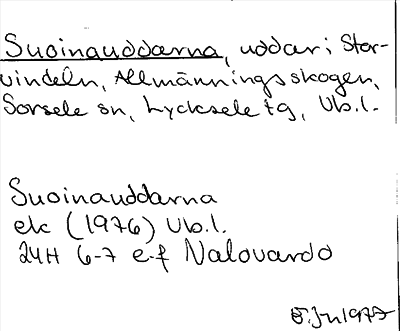 Suoinauddarna, uddar i Stor-
vindeln, Allmänningsskogen,
Sorsele sn, Lycksele tg, Vb.l.
Suoinauddarna
ek (1976) Vb.l.
24H 6-7 e-f Nalovardo